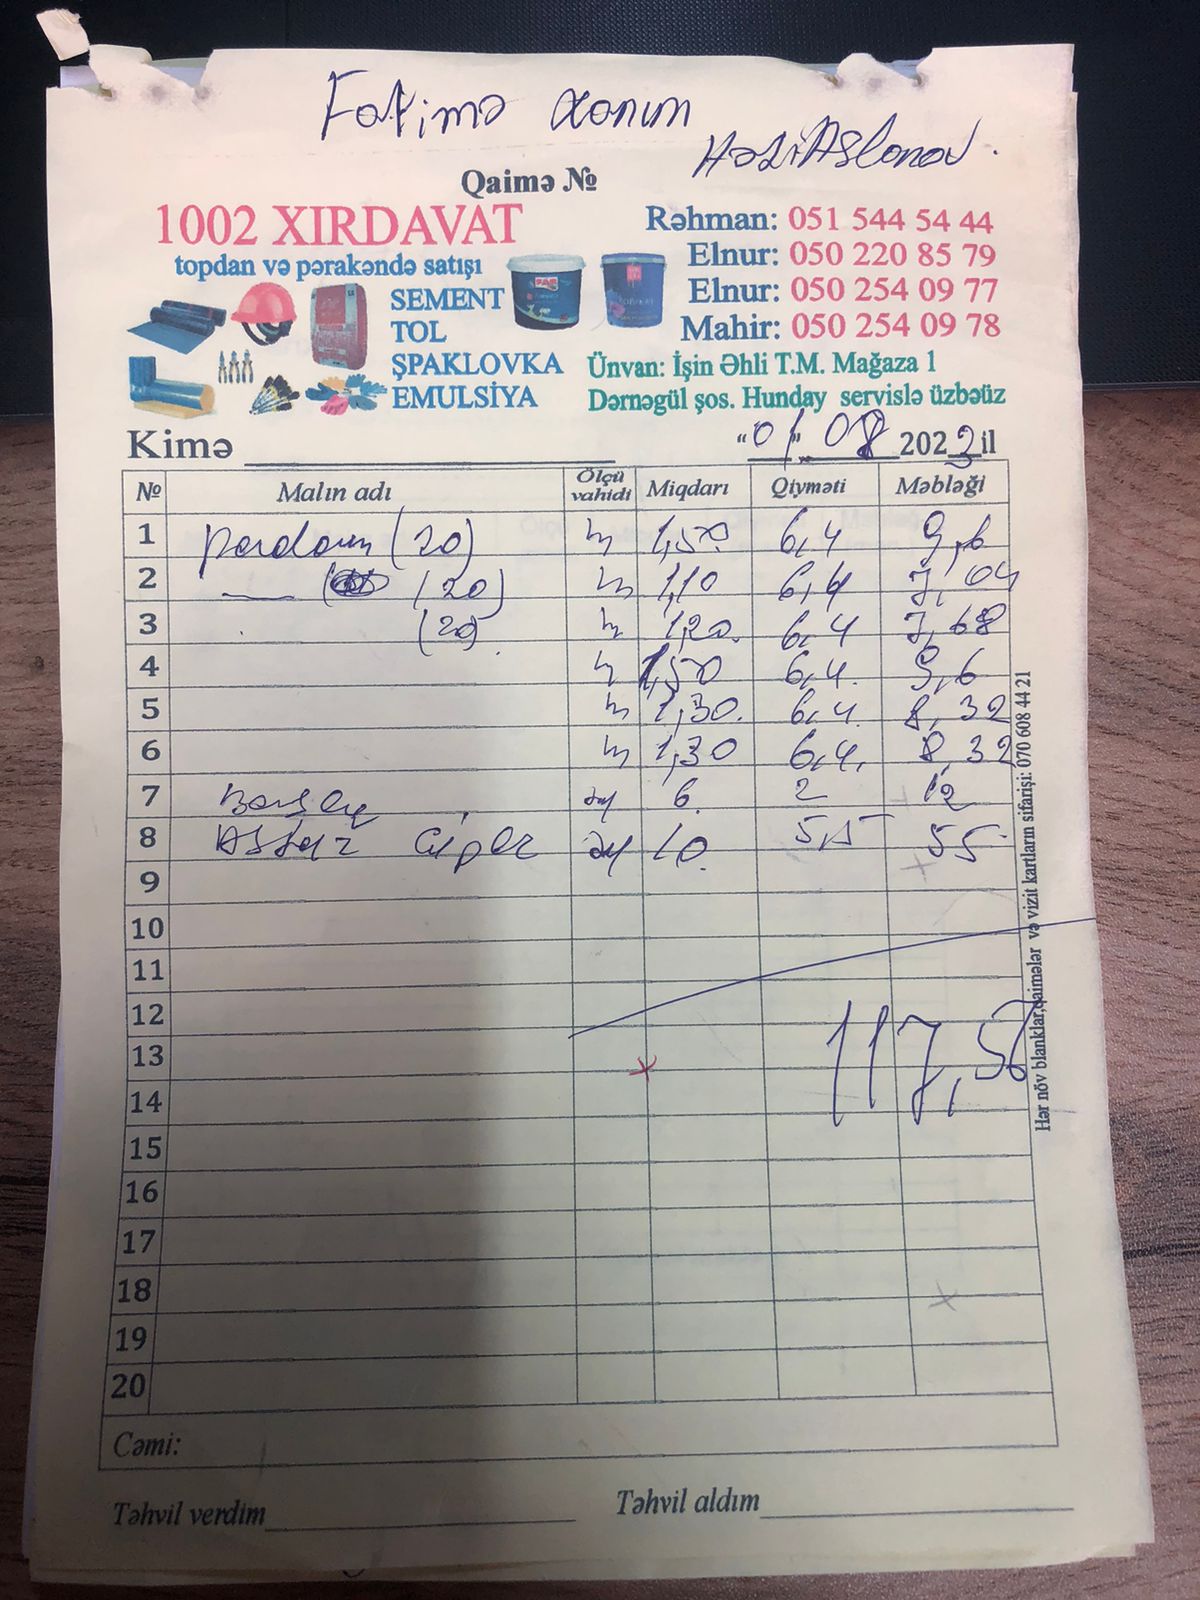 Fatimə xanım
Həzi Aslanov.
Qaimə №
1002 XIRDAVAT
topdan və pərakəndə satışı
SEMENT
TOL
ŞPAKLOVKA
EMULSİYA
Rəhman: 051 544 54 44
Elnur: 050 220 85 79
Elnur: 050 254 09 77
Mahir: 050 254 09 78
Ünvan: İşin Əhli T.M. Mağaza 1
Dərnəgül şos. Hunday servislə üzbəüz
Kimə "01" 08 2022 il
№ Malın adı Ölçü vahidi Miqdarı Qiyməti Məbləği
1 (20) m 1,50 6,4 9,6
2 (20) m 1,10 6,4 7,04
3 (20) m 1,20 6,4 7,68
4 m 1,50 6,4 9,6
5 m 1,30 6,4 8,32
6 m 1,30 6,4 8,32
7 əd 6 2 12
8 əd 10 5,5 55
9
10
11
12
13
14
15
16
17
18
19
20
117,50
Cəmi:
Təhvil verdim Təhvil aldım
Hər növ blanklar,qaimələr və vizit kartların sifarişi: 070 608 44 21